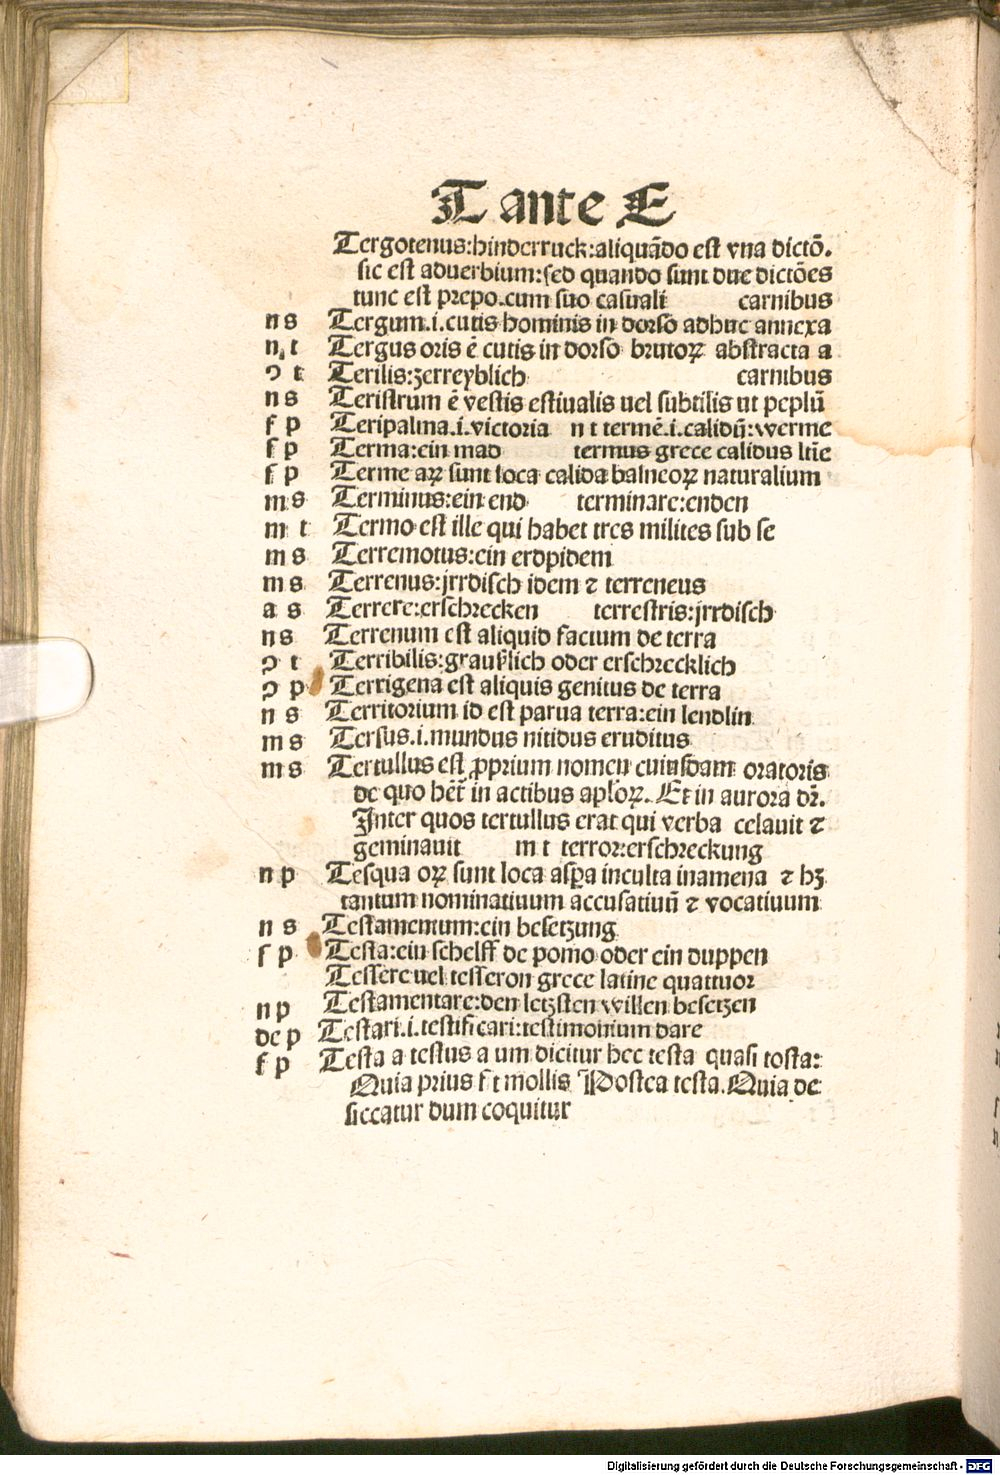 T ante E
Tergotenus:hinderruck:aliquãdo est vna dictõ.
sic est aduerbium:sed quando sunt due dictões
tunc est prepo.cum suo casuali carnibus
n s Tergum.i.cutis hominis in dorso adhuc annexa
n t Tergus oris ē cutis in dorso brutoꝝ abstracta a
ↄ t Terilis:zerreyblich carnibus
n s Teristrum ē vestis estiualis uel subtilis ut peplũ
f p Teripalma.i.victoria n t termē.i.calidũ:werme
f p Terma:ein mad termus grece calidus ltīe
f p Terme aꝝ sunt loca calida balneoꝝ naturalium
m s Terminus:ein end terminare:enden
m t Termo est ille qui habet tres milites sub se
m s Terremotus:ein erdpidem
m s Terrenus:jrrdisch idem ⁊ terreneus
a s Terrere:erschrecken terrestris:jrrdisch
n s Terrenum est aliquid factum de terra
ↄ t Terribilis:graußlich oder erschrecklich
ↄ p Terrigena est aliquis genitus de terra
n s Territorium id est parua terra:ein lendlin
m s Tersus.i.mundus nitidus eruditus
m s Tertullus est ꝓprium nomen cuiusdam oratoris
de quo hēt in actibus aplõꝝ. Et in aurora dr̃.
Inter quos tertullus erat qui verba celauit ⁊
geminauit m t terror:erschreckung
n p Tesqua oꝝ sunt loca asꝑa inculta inamena ⁊ hꝫ
tantum nominatiuum accusatiuũ ⁊ vocatiuum
n s Testamentum:ein besetzung
f p Testa:ein schelff de pomo oder ein duppen
Tessere uel tesseron grece latine quattuor
n p Testamentare:den letzsten willen besetzen
de p Testari.i.testificari:testimonium dare
f p Testa a testus a um dicitur hec testa quasi tosta:
Quia prius f t mollis Postea testa.Quia de
siccatur dum coquitur
Digitalisierung gefördert durch die Deutsche Forschungsgemeinschaft - DFG